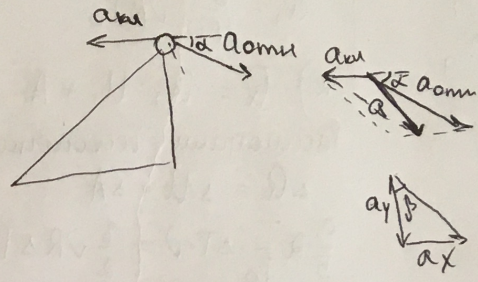 aкл
α aотн
aкл
α aотн
a
ay β
ax